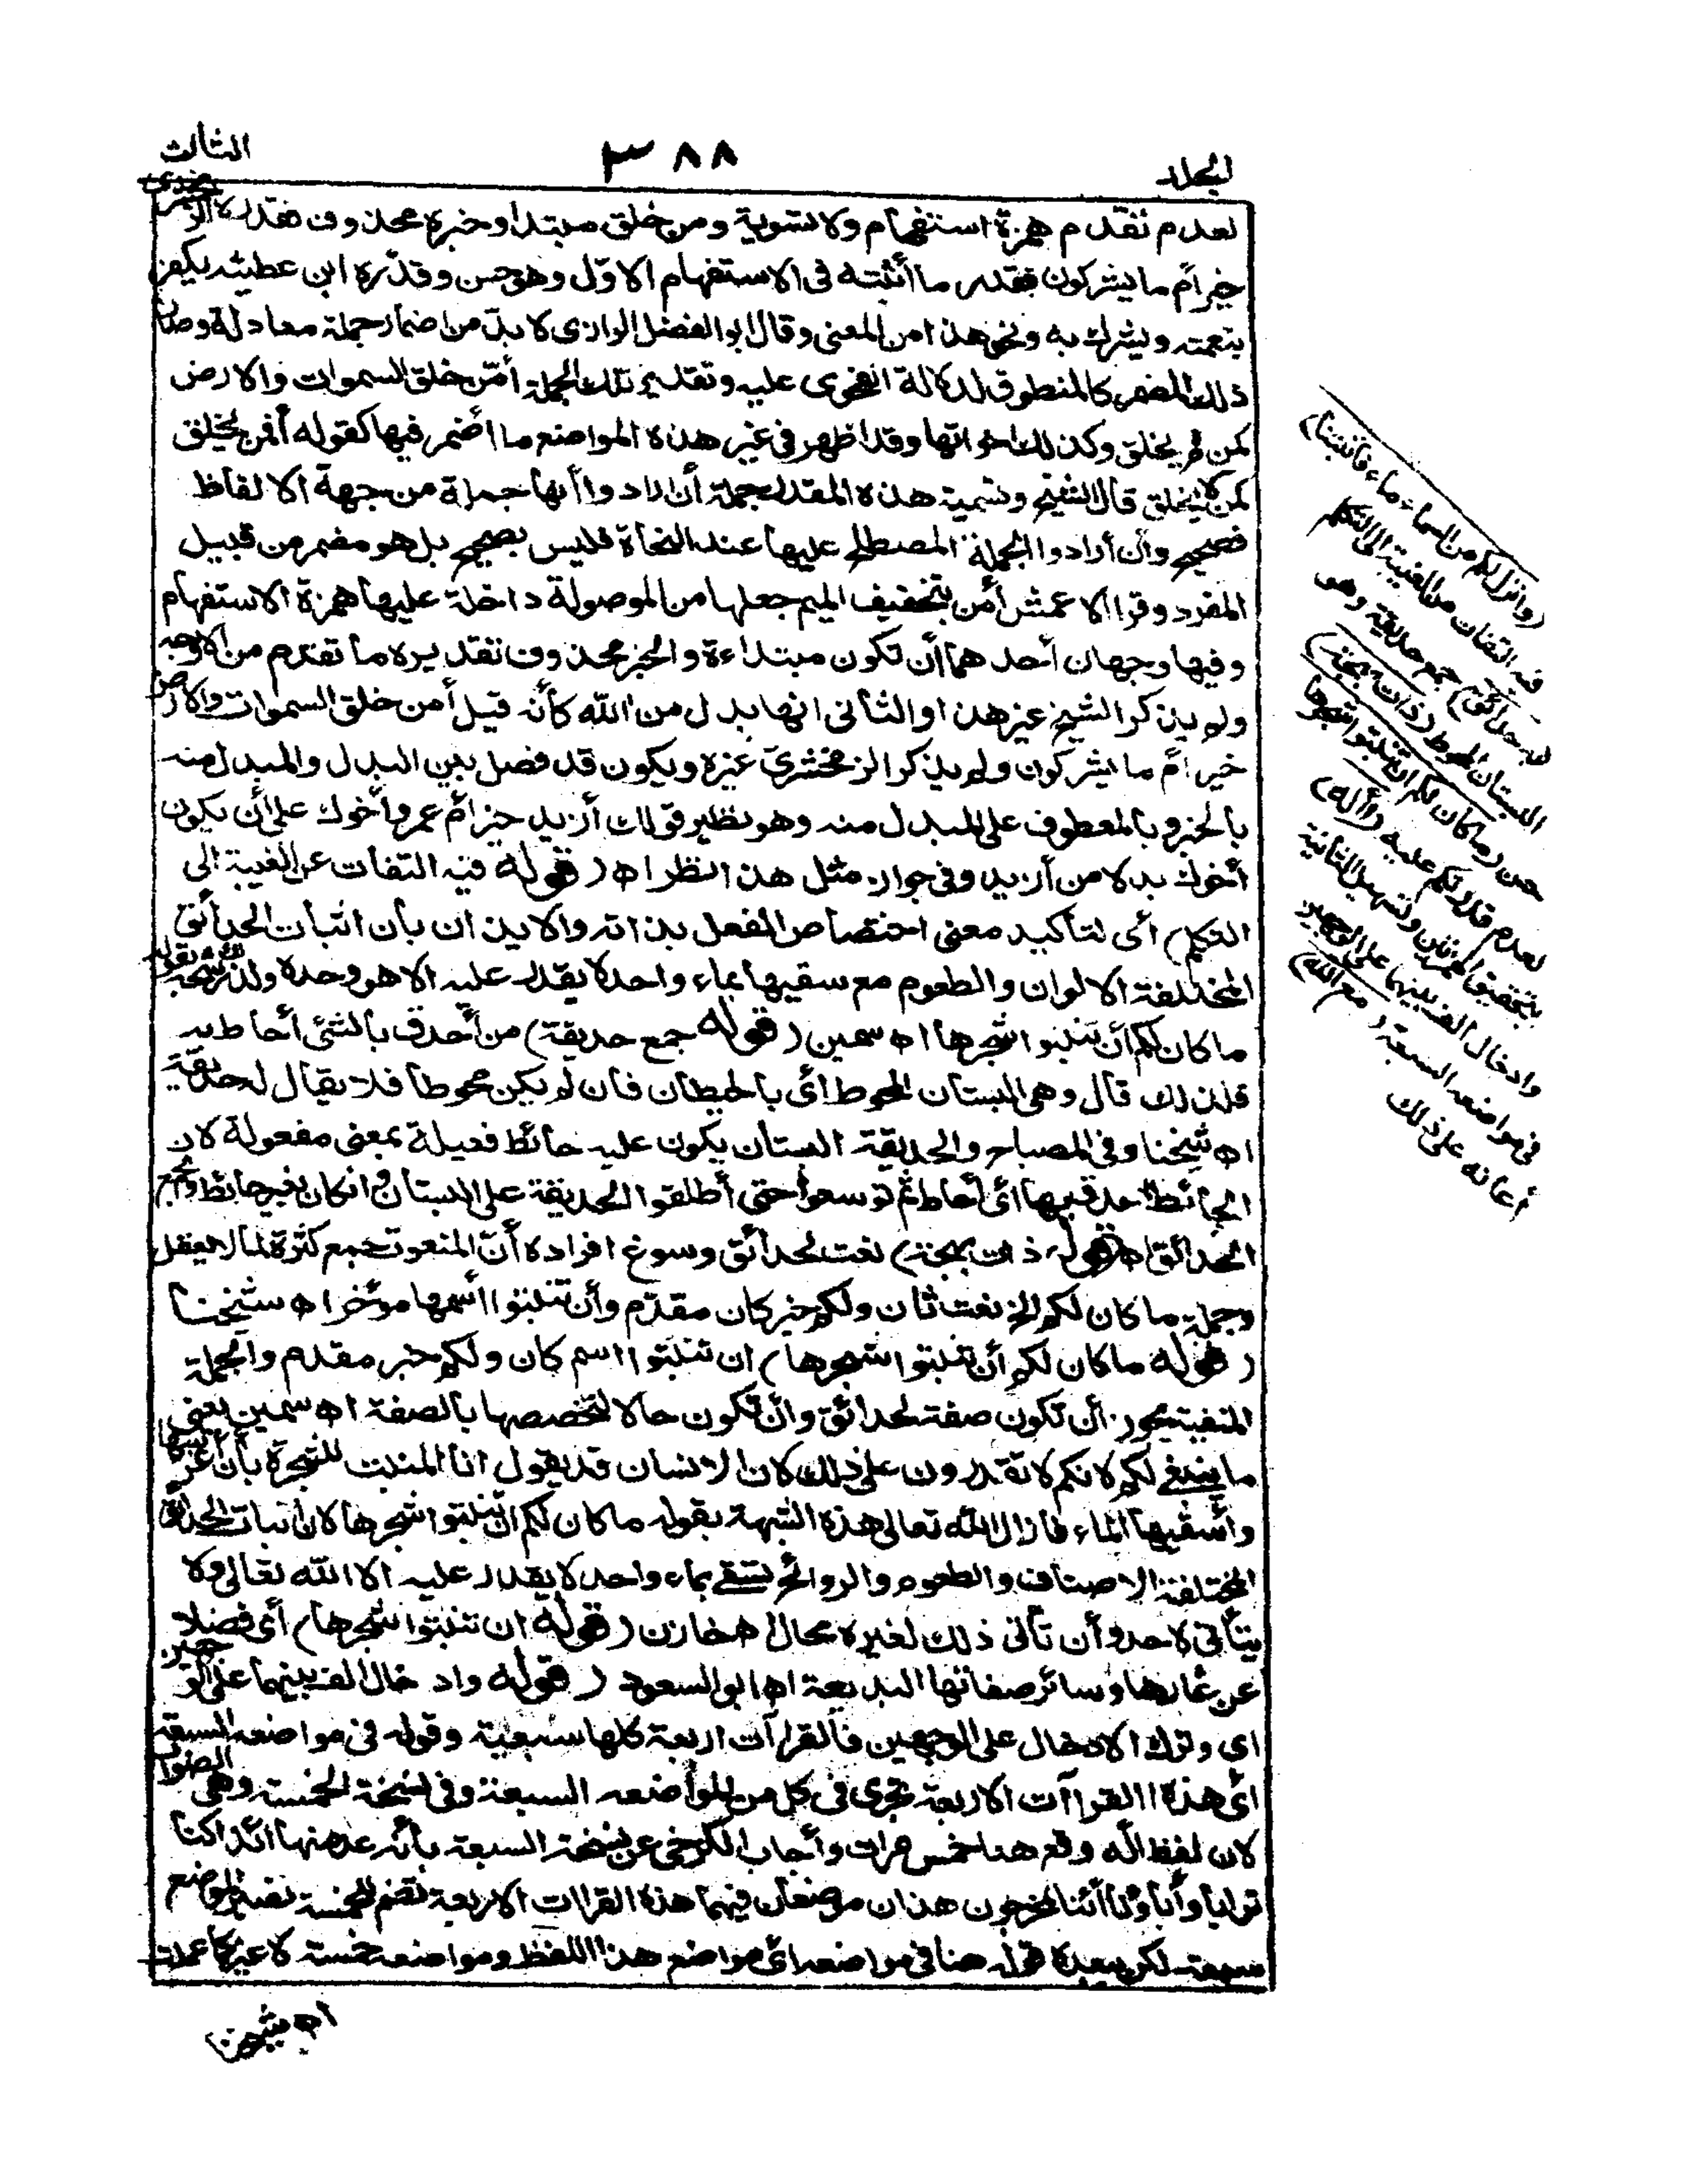 المجلد
٣٨٨
الثالث
لعدم تقدم همزة استفهام ولا تسوية ومن خلق مبتدا وخبره محذوف فقدره الزمخشري
خير أم ما يشركون فقدر ما أثبته فى الاستفهام الاول وهو حسن وقدره ابن عطية يكفر
بنعمته ويشرك به ونحو هذا من المعنى وقال ابو الفضل الرازى لا بد من اضمار جملة معادلة وصار
ذلك المضمر كالمنطوق لدلالة الفحوى عليه وتقدير تلك الجملة أمّن خلق السموات والارض
كمن لم يخلق وكذلك اخواتها وقد اظهر فى غير هذه المواضع ما أضمر فيها كقوله أفمن يخلق
كمن لا يخلق قال الشيخ وتسمية هذه المقدر جملة أن ارادوا أنها جملة من جهة الالفاظ
فصحيح وان أرادوا الجملة المصطلح عليها عند النحاة فليس بصحيح بل هو مضمر من قبيل
المفرد وقرا الاعمش أمن بتخفيف الميم جعلها من الموصولة داخلة عليها همزة الاستفهام
وفيها وجهان أحدهما أن تكون مبتداءة والخبر محذوف تقديره ما تقدم من الاوجه
ولم يذكر الشيخ غير هذا والثانى انها بدل من الله كأنه قيل أمن خلق السموات والارض
خير أم ما يشركون ولم يذكر الزمخشرى غيره ويكون قد فصل بين البدل والمبدل منه
بالخبر وبالمعطوف على المبدل منه وهو نظير قولك أزيد خير أم عمرو أأخوك على أن يكون
أأخوك بدلا من أزيد وفى جواز مثل هذا نظر اه (قوله فيه التفات عن الغيبة الى
التكلم) أى لتأكيد معنى اختصاص الفعل بذاته والايذان بأن انبات الحدائق
المختلفة الالوان والطعوم مع سقيها بماء واحد لا يقدر عليه الا هو وحده ولذا رشحه بقوله
ما كان لكم أن تنبتوا شجرها اه سمين (قوله جمع حديقة) من أحدق بالشئ أحاط به
فلذلك قال وهى البستان المحوط أى بالحيطان فان لم يكن محوطا فلا يقال له حديقة
اه شيخنا وفى المصباح والحديقة البستان يكون عليه حائط فعيلة بمعنى مفعولة لان
الحائط حدق بها أى أحاط ثم توسعوا حتى أطلقوا الحديقة على البستان وان كان بغير حائط والجمع
الحدائق اه (قوله ذات بهجة) نعت لحدائق وسوغ افراده أن المنعوت جمع كثرة لما لا يعقل
وجملة ما كان لكم الخ نعت ثان ولكم خبر كان مقدم وأن تنبتوا اسمها مؤخرا اه شيخنا
(قوله ما كان لكم أن تنبتوا شجرها) ان تنبتوا اسم كان ولكم خبر مقدم والجملة
المنفية يجوز أن تكون صفة لحدائق وان تكون حالا لتخصصها بالصفة اه سمين يعنى
ما ينبغى لكم لانكم لا تقدرون على ذلك لان الانسان قد يقول انا المنبت للشجرة بأن أغرسها
وأسقيها الماء فازال الله تعالى هذه الشبهة بقوله ما كان لكم ان تنبتوا شجرها لان انبات الحدائق
المختلفة الاصناف والطعوم والروائح تسقى بماء واحد لا يقدر عليه الا الله تعالى ولا
يتأتى لاحد وأن تأتى ذلك لغيره محال اه خازن (قوله ان تنبتوا شجرها) أى فضلا
عن ثمارها وسائر صفاتها البديعة اه ابو السعود (قوله وادخال الف بينهما على الوجهين
اى وترك الادخال على الوجهين فالقراآت اربعة كلها سبعية وقوله فى مواضعه السبعة
أى هذه القراآت الاربعة تجرى فى كل من المواضعه السبعة وفى نسخة الخمسة وهى الصواب
لان لفظ أله وقع هنا خمس مرات وأجاب الكرخى عن نسخة السبعة بأنه عد منها ائذا كنا
ترابا وأباؤنا أئنا لمخرجون هذان موضعان فيهما هذه القراات الاربعة تضم للخمسة تصير المواضع
سبعة لكن يبعده قوله هنا فى مواضعه أى مواضع هذا اللفظ ومواضعه خمسة لا غير كما علمت
اه شيخنا
(وانزل لكم من السماء ماء فأنبتنا)
فيه التفات من الغيبة الى التكلم
(به حدائق) جمع حديقة وهو
البستان المحوط (ذات بهجة)
حسن (ما كان لكم ان تنبتوا شجرها)
لعدم قدرتكم عليه (أاله)
بتحقيق الهمزتين وتسهيل الثانية
وادخال الف بينهما على الوجهين
فى مواضعه السبعة (مع الله)
أعانه على ذلك